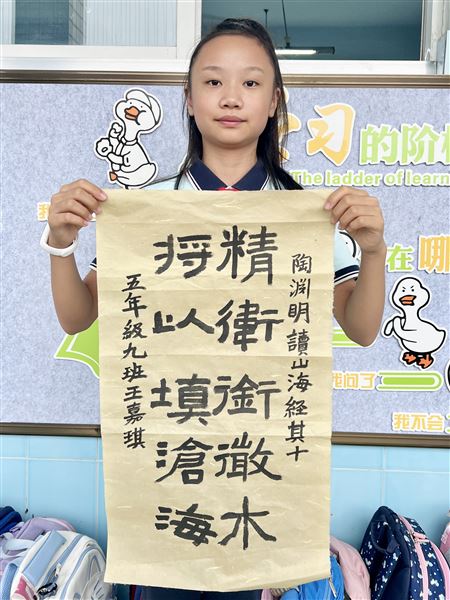 习的阶
The ladder of learn
在哪
我问了
我不会
陶渊明讀山海經其十
精衛銜微木
将以填滄海
五年級九班王嘉琪